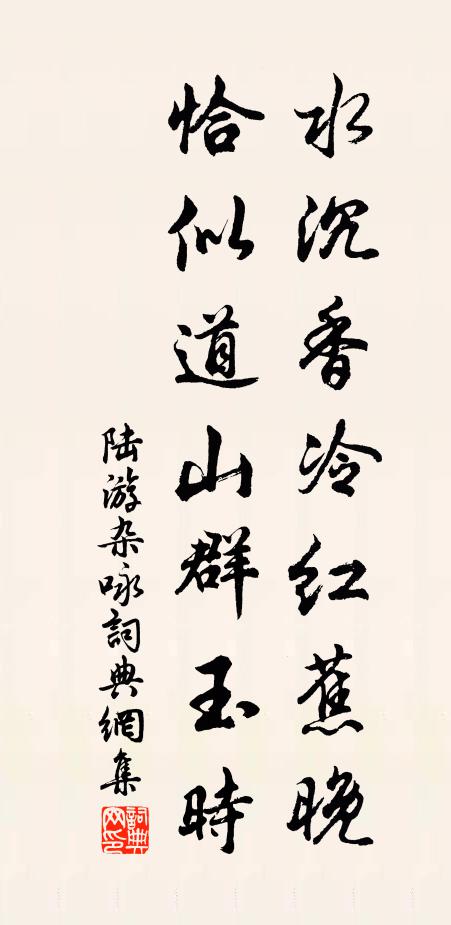 水沉香冷红蕉晚
恰似道山群玉時
陆游杂咏詞典網集
詞典